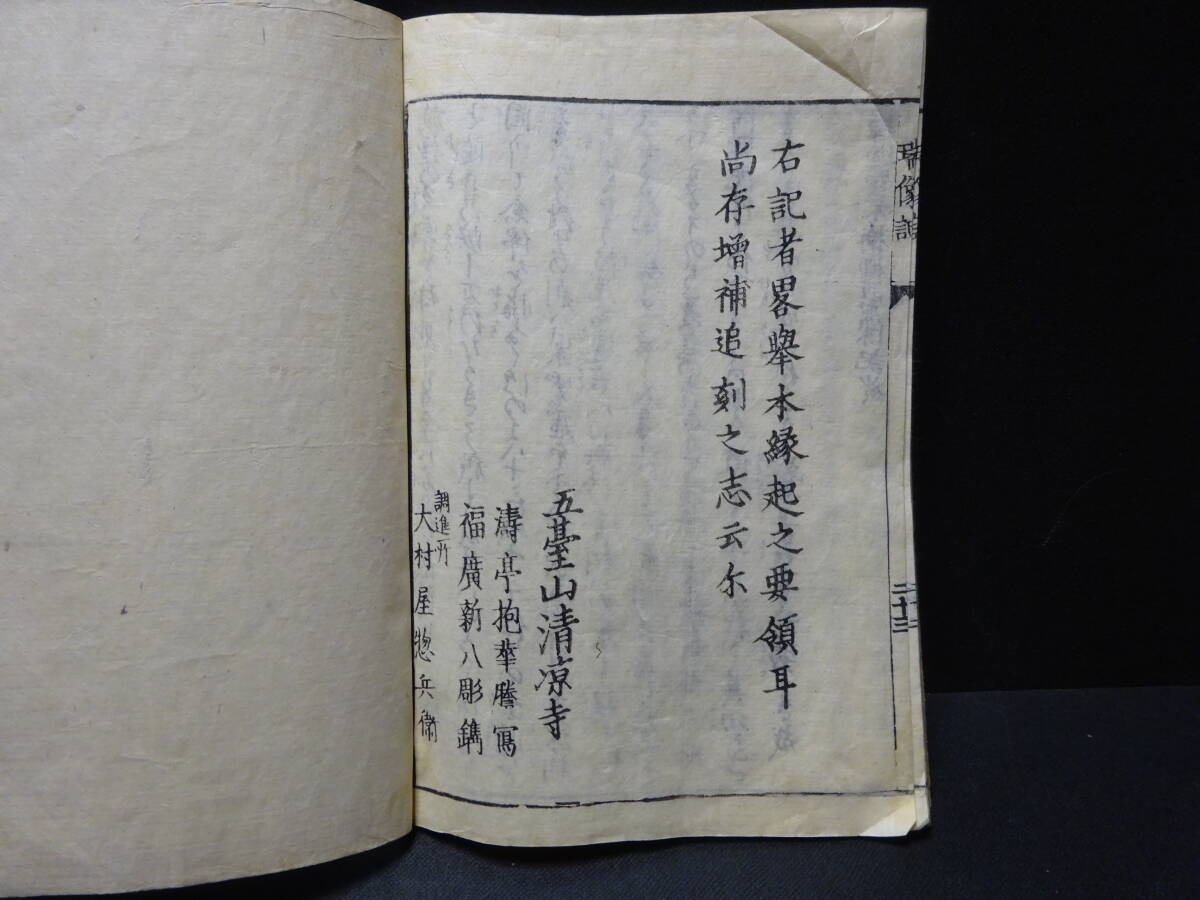 瑞像譜
二十三
右記者畧舉本縁起之要領耳
尚存增補追刻之志云尓
五臺山清涼寺
濤亭抱華謄寫
福廣新八彫鐫
調進所
大村屋惣兵衛